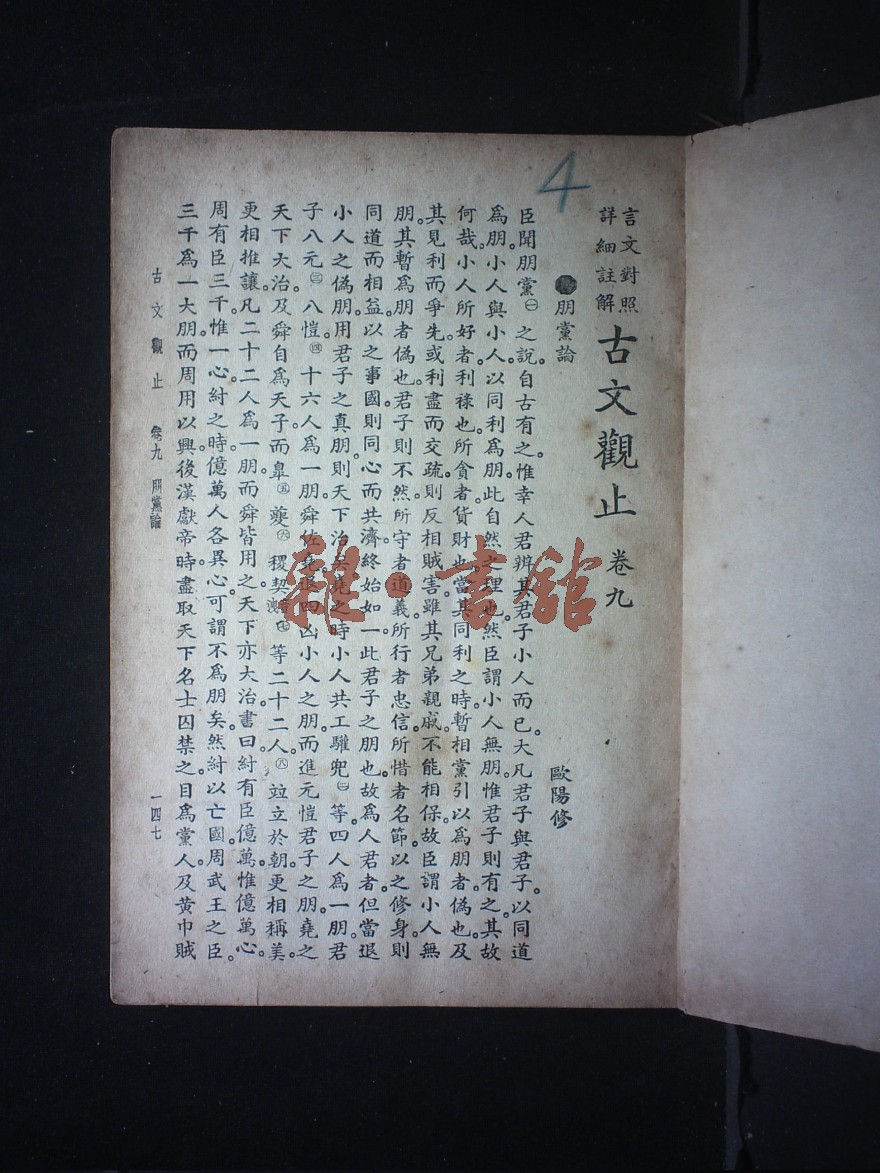 4
言文對照
詳細註解
古文觀止 卷九
朋黨論
歐陽修
臣聞朋黨㊀之說。自古有之。惟幸人君辨其君子小人而已。大凡君子與君子。以同道
爲朋。小人與小人。以同利爲朋。此自然之理也。然臣謂小人無朋。惟君子則有之。其故
何哉。小人所好者利祿也。所貪者貨財也。當其同利之時。暫相黨引以爲朋者。僞也。及
其見利而爭先。或利盡而交疏。則反相賊害。雖其兄弟親戚。不能相保。故臣謂小人無
朋。其暫爲朋者僞也。君子則不然。所守者道義。所行者忠信。所惜者名節。以之修身。則
同道而相益。以之事國。則同心而共濟。終始如一。此君子之朋也。故爲人君者。但當退
小人之僞朋。用君子之真朋。則天下治矣。堯之時。小人共工驩兜㊁等四人爲一朋。君
子八元㊂八愷㊃十六人爲一朋。舜佐堯。退四凶小人之朋。而進元愷君子之朋。堯之
天下大治。及舜自爲天子。而皐㊄夔㊅稷契㊆等二十二人㊇竝立於朝。更相稱美。
更相推讓。凡二十二人爲一朋。而舜皆用之。天下亦大治。書曰。紂有臣億萬。惟億萬心。
周有臣三千。惟一心。紂之時。億萬人各異心。可謂不爲朋矣。然紂以亡國。周武王之臣。
三千爲一大朋。而周用以興。後漢獻帝時。盡取天下名士囚禁之。目爲黨人。及黄巾賊
古文觀止 卷九 朋黨論
一四七
雜·書館